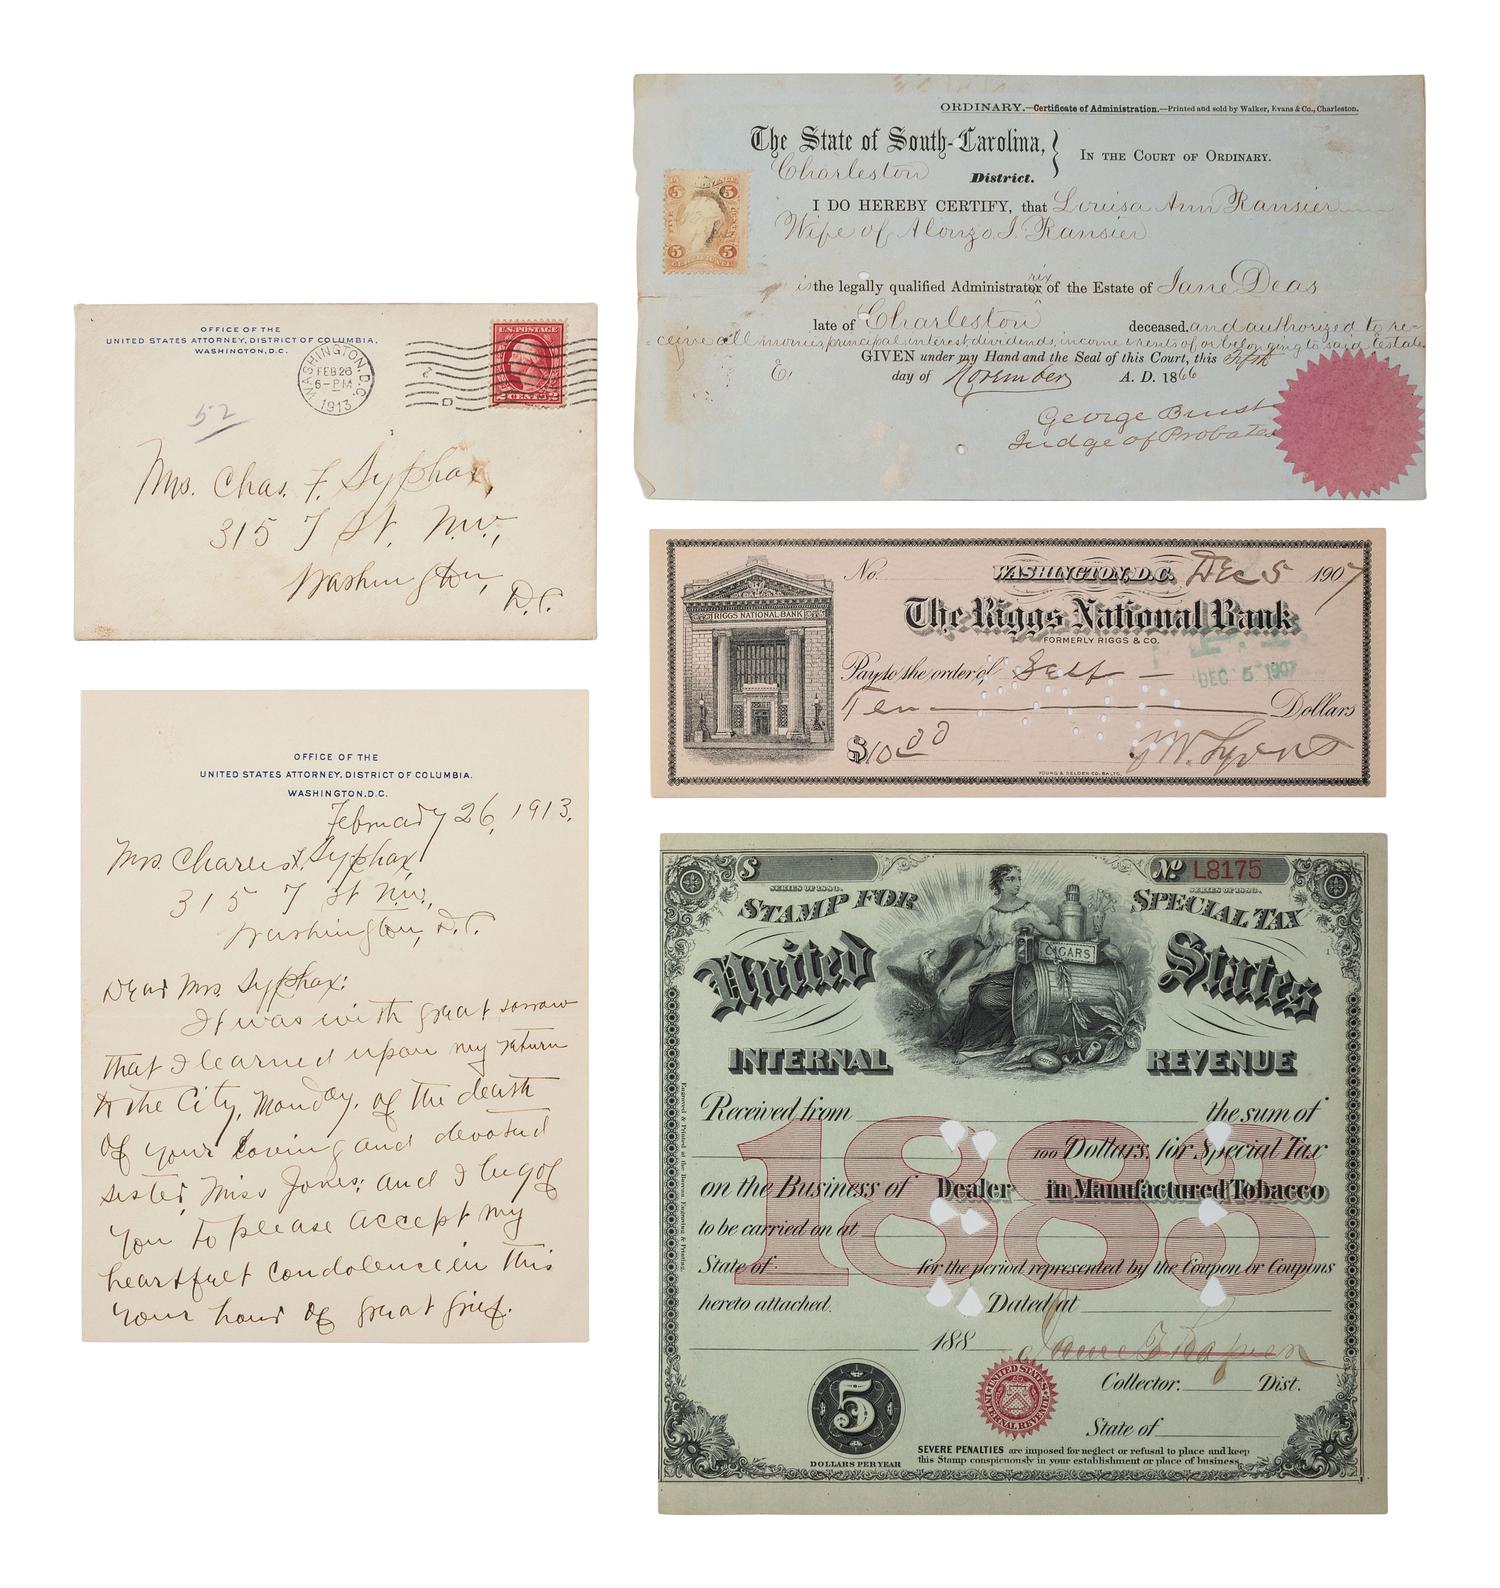 OFFICE OF THE
UNITED STATES ATTORNEY, DISTRICT OF COLUMBIA,
WASHINGTON, D.C.
WASHINGTON, D.C.
FEB 26
6-PM
1913
U.S. POSTAGE
2 CENTS 2
52
Mrs. Chas. F. Syphax,
315 T St. N.W.,
Washington,
D.C.
OFFICE OF THE
UNITED STATES ATTORNEY, DISTRICT OF COLUMBIA.
WASHINGTON, D.C.
February 26, 1913.
Mrs. Charles F. Syphax,
315 T St NW.,
Washington, D.C.
Dear Mrs. Syphax:
It was with great sorrow
that I learned upon my return
to the City, Monday, of the death
of your loving and devoted
sister, Miss Jones; and I beg of
you to please accept my
heartfelt condolence in this
your hour of great grief.
ORDINARY.—Certificate of Administration.—Printed and sold by Walker, Evans & Co., Charleston.
The State of South-Carolina,
IN THE COURT OF ORDINARY.
Charleston District.
5 5
5 5
I DO HEREBY CERTIFY, that Louisa Ann Ransier
Wife of Alonzo J. Ransier
is the legally qualified Administratrix of the Estate of Jane Deas
late of Charleston deceased. and authorized to re-
ceive all monies, principal, interest, dividends, income & rents of or belonging to said Estate
GIVEN under my Hand and the Seal of this Court, this Fifth
day of November A. D. 1866
George Buist
Judge of Probate
No. WASHINGTON, D.C. Dec 5 1907
RIGGS NATIONAL BANK
The Riggs National Bank
FORMERLY RIGGS & CO.
Pay to the order of Self
DEC 5 1907
Ten Dollars
$10.00
J W. Lyons
YOUNG & SELDEN CO. BALTO.
$
No L8175
SERIES OF 1883.
SERIES OF 1883.
STAMP FOR SPECIAL TAX
CIGARS
United States
INTERNAL REVENUE
1883
Received from the sum of
100 Dollars, for Special Tax
on the Business of Dealer in Manufactured Tobacco
to be carried on at
State of for the period represented by the Coupon or Coupons
hereto attached. Dated at
188
Collector. Dist.
State of
5
DOLLARS PER YEAR
UNITED STATES INTERNAL REVENUE
SEVERE PENALTIES are imposed for neglect or refusal to place and keep
this Stamp conspicuously in your establishment or place of business.
Engraved & Printed at the Bureau, Engraving & Printing.